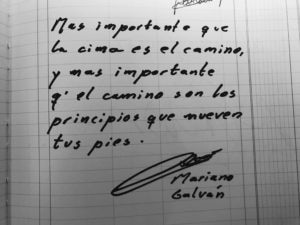 Mas importante que
la cima es el camino,
y mas importante
q' el camino son los
principios que mueven
tus pies.
Mariano
Galván